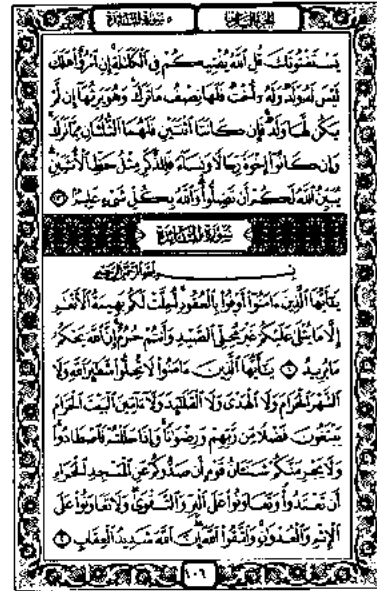 الجزء السادس
٥ سورة المائدة
يَسْتَفْتُونَكَ قُلِ ٱللَّهُ يُفْتِيكُمْ فِي ٱلْكَلَٰلَةِ إِنِ ٱمْرُؤٌا۟ هَلَكَ
لَيْسَ لَهُۥ وَلَدٌ وَلَهُۥٓ أُخْتٌ فَلَهَا نِصْفُ مَا تَرَكَ وَهُوَ يَرِثُهَآ إِن لَّمْ
يَكُن لَّهَا وَلَدٌ فَإِن كَانَتَا ٱثْنَتَيْنِ فَلَهُمَا ٱلثُّلُثَانِ مِمَّا تَرَكَ
وَإِن كَانُوٓا۟ إِخْوَةً رِّجَالًا وَنِسَآءً فَلِلذَّكَرِ مِثْلُ حَظِّ ٱلْأُنثَيَيْنِ
يُبَيِّنُ ٱللَّهُ لَكُمْ أَن تَضِلُّوا۟ وَٱللَّهُ بِكُلِّ شَىْءٍ عَلِيمٌۢ
سورة المائدة
بِسْمِ ٱللَّهِ ٱلرَّحْمَٰنِ ٱلرَّحِيمِ
يَٰٓأَيُّهَا ٱلَّذِينَ ءَامَنُوٓا۟ أَوْفُوا۟ بِٱلْعُقُودِ أُحِلَّتْ لَكُم بَهِيمَةُ ٱلْأَنْعَٰمِ
إِلَّا مَا يُتْلَىٰ عَلَيْكُمْ غَيْرَ مُحِلِّى ٱلصَّيْدِ وَأَنتُمْ حُرُمٌ إِنَّ ٱللَّهَ يَحْكُمُ
مَا يُرِيدُ ١ يَٰٓأَيُّهَا ٱلَّذِينَ ءَامَنُوا۟ لَا تُحِلُّوا۟ شَعَٰٓئِرَ ٱللَّهِ وَلَا
ٱلشَّهْرَ ٱلْحَرَامَ وَلَا ٱلْهَدْىَ وَلَا ٱلْقَلَٰٓئِدَ وَلَآ ءَآمِّينَ ٱلْبَيْتَ ٱلْحَرَامَ
يَبْتَغُونَ فَضْلًا مِّن رَّبِّهِمْ وَرِضْوَٰنًا وَإِذَا حَلَلْتُمْ فَٱصْطَادُوا۟
وَلَا يَجْرِمَنَّكُمْ شَنَـَٔانُ قَوْمٍ أَن صَدُّوكُمْ عَنِ ٱلْمَسْجِدِ ٱلْحَرَامِ
أَن تَعْتَدُوا۟ وَتَعَاوَنُوا۟ عَلَى ٱلْبِرِّ وَٱلتَّقْوَىٰ وَلَا تَعَاوَنُوا۟ عَلَى
ٱلْإِثْمِ وَٱلْعُدْوَٰنِ وَٱتَّقُوا۟ ٱللَّهَ إِنَّ ٱللَّهَ شَدِيدُ ٱلْعِقَابِ ٢
١٠٦